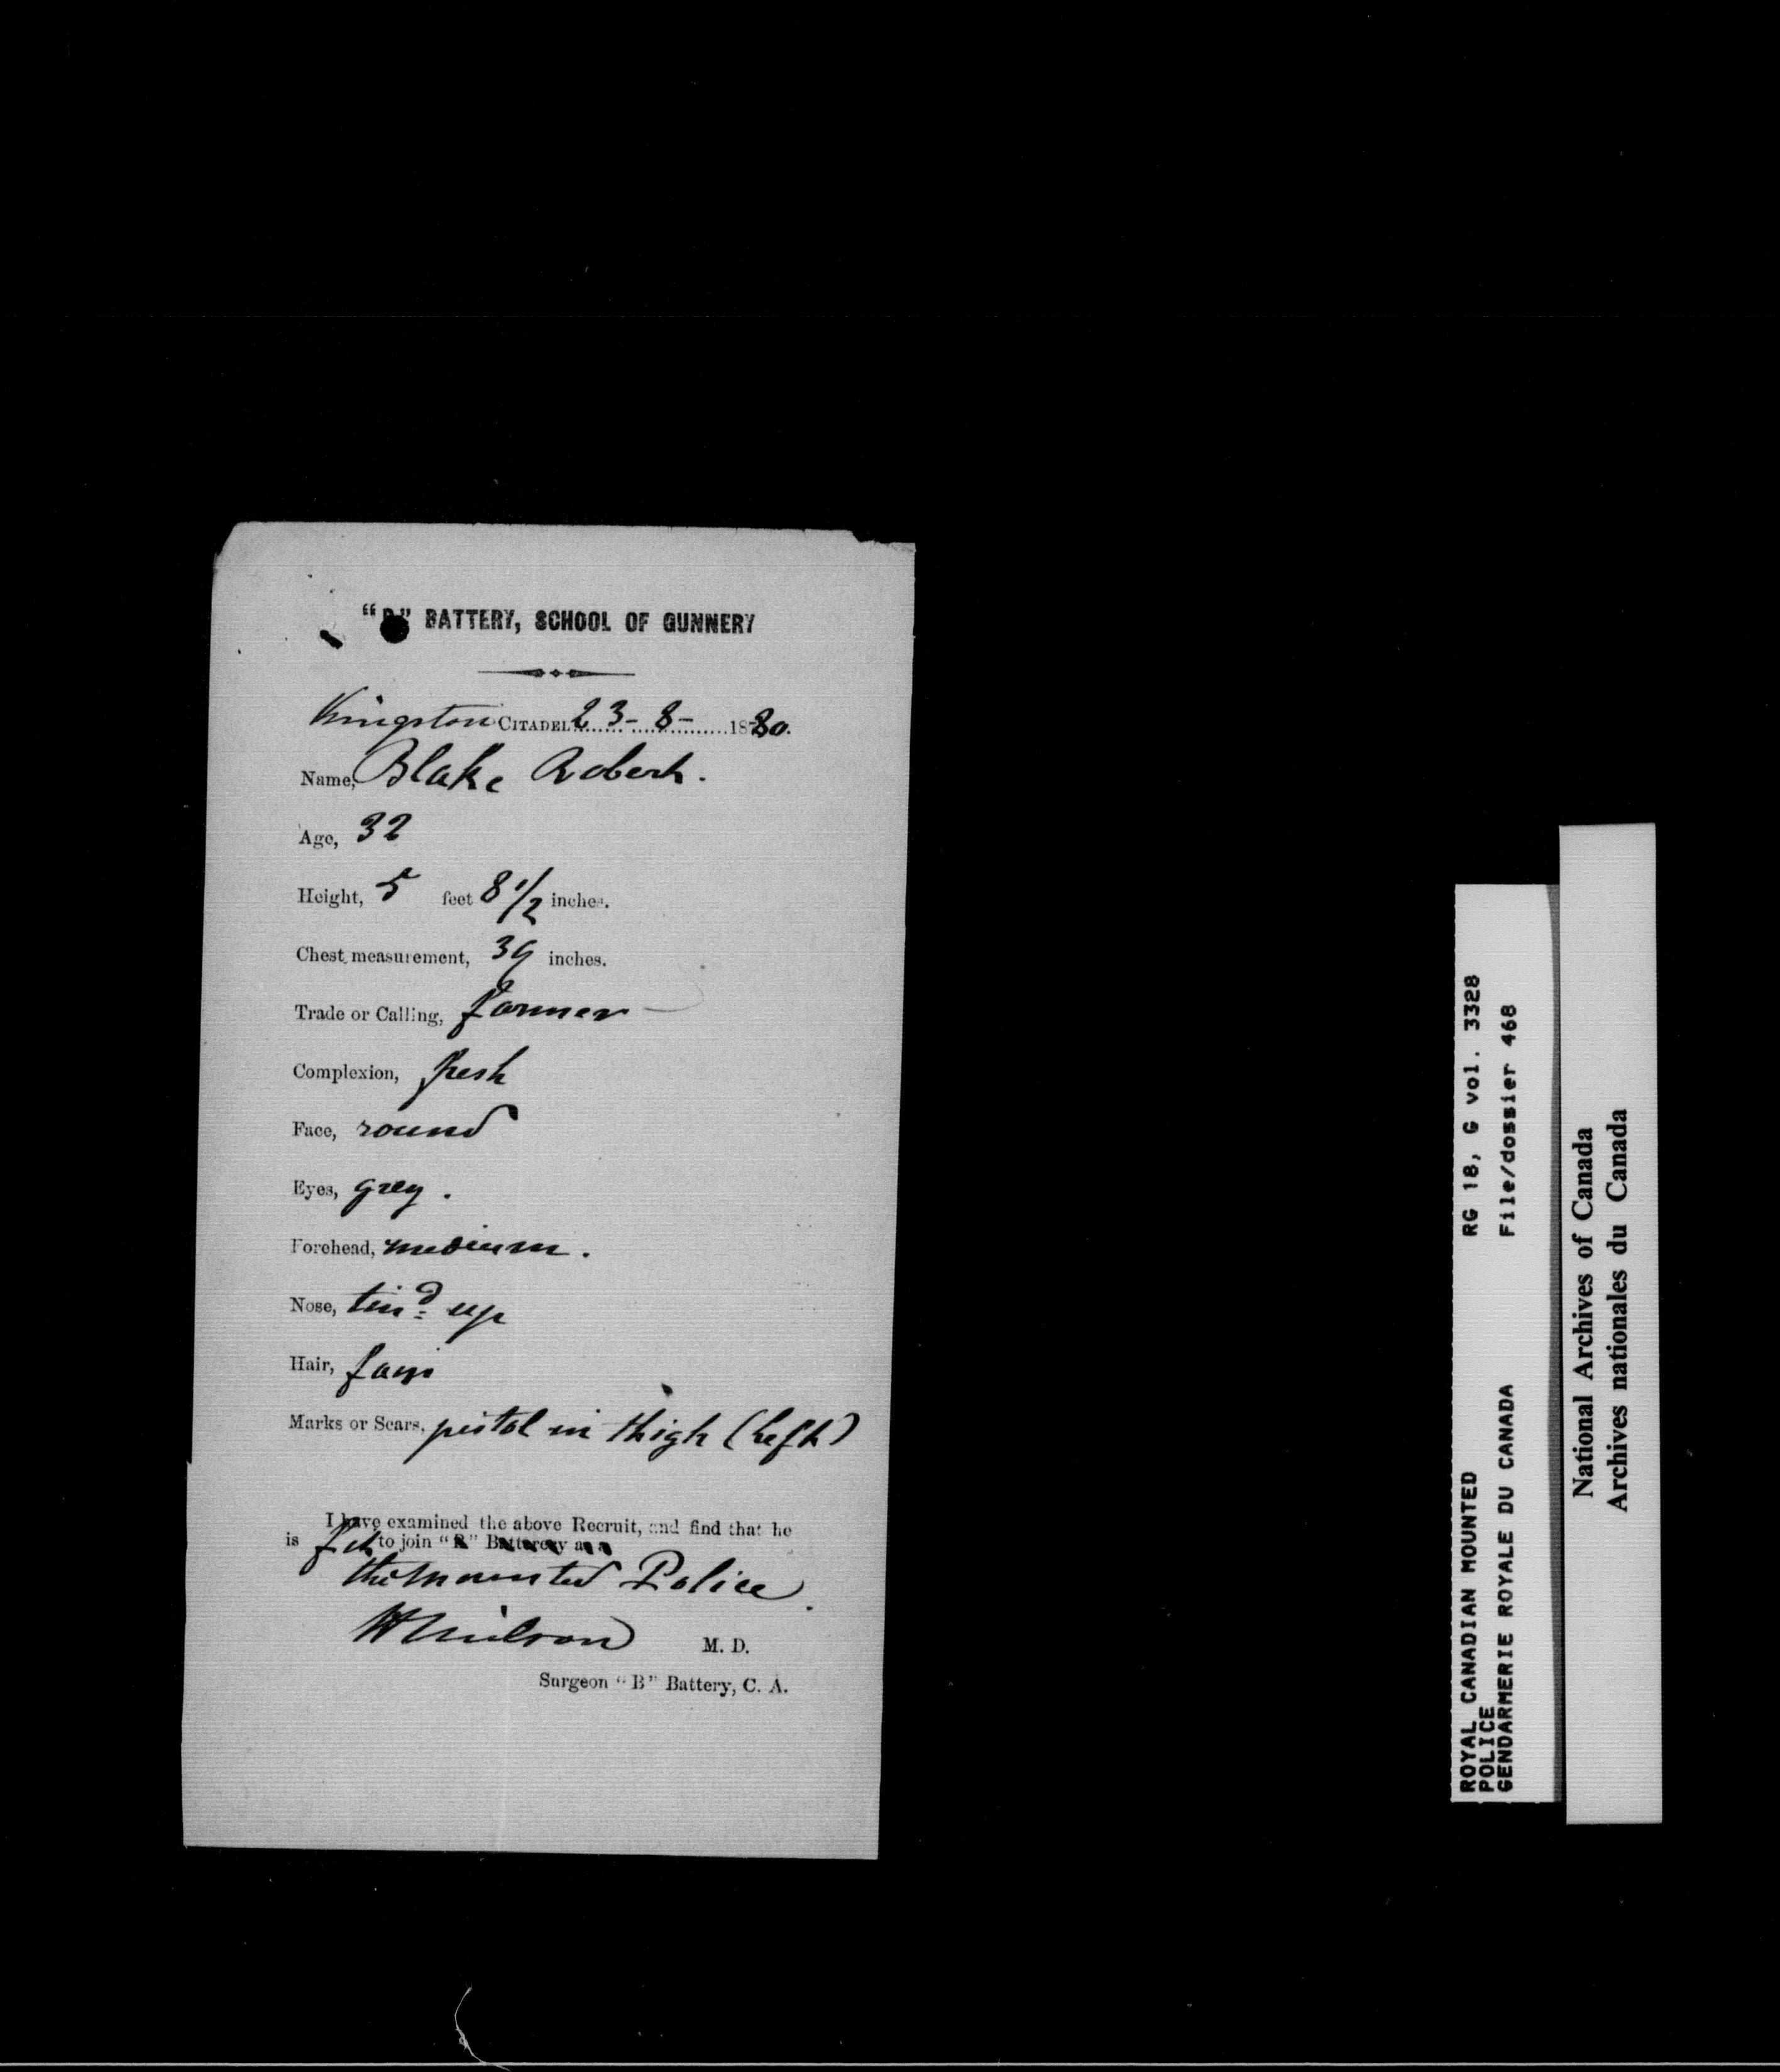 "B" BATTERY, SCHOOL OF GUNNERY
Kingston CITADEL 23-8- 1880.
Name, Blake Robert.
Age, 32
Height, 5 feet 8 1/2 inches.
Chest measurement, 39 inches.
Trade or Calling, farmer
Complexion, fresh
Face, round
Eyes, grey.
Forehead, medium.
Nose, turd up
Hair, fair
Marks or Scars, pistol in thigh (left)
I have examined the above Recruit, and find that he
is fit to join "B" Battery as a
the Mounted Police.
M. D.
Surgeon "B" Battery, C. A.
ROYAL CANADIAN MOUNTED RG 18, G vol. 3328
POLICE
GENDARMERIE ROYALE DU CANADA File/dossier 468
National Archives of Canada
Archives nationales du Canada